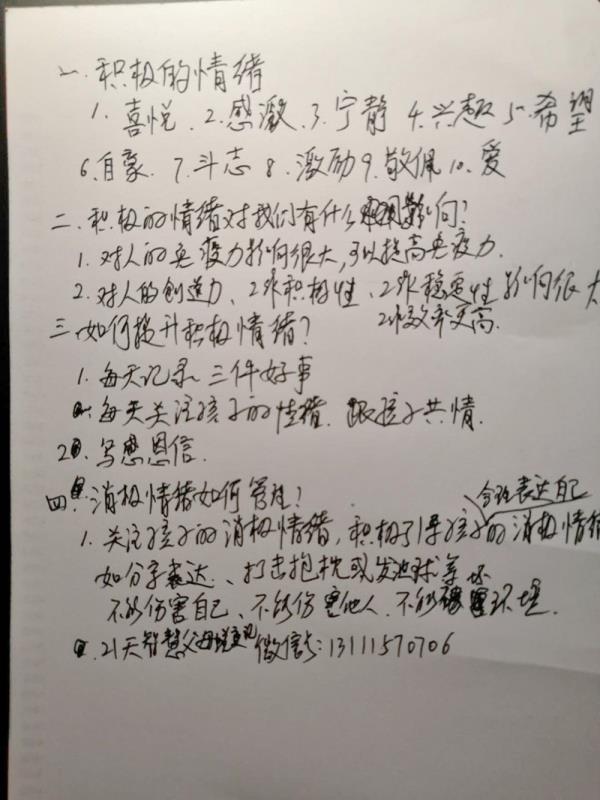 一、积极的情绪
1.喜悦、2.感激、3.宁静 4.兴趣 5.希望
6.自豪、7.斗志 8、激励 9、敬佩 10、爱
二、积极的情绪对我们有什么影响?
1.对人的免疫力影响很大,可以提高免疫力.
2.对人的创造力、工作积极性、工作稳定性影响很大
工作效率更高.
三、如何提升积极情绪?
1.每天记录三件好事
每天关注孩子的情绪.跟孩子共情.
2.写感恩信.
四、消极情绪如何管理?
合理表达自己
1.关注孩子的消极情绪,积极引导孩子的消极情绪
如分享表达、打击抱枕或发泄球等
不能伤害自己、不能伤害他人、不能破坏环境.
21天智慧父母 微信:13111570706